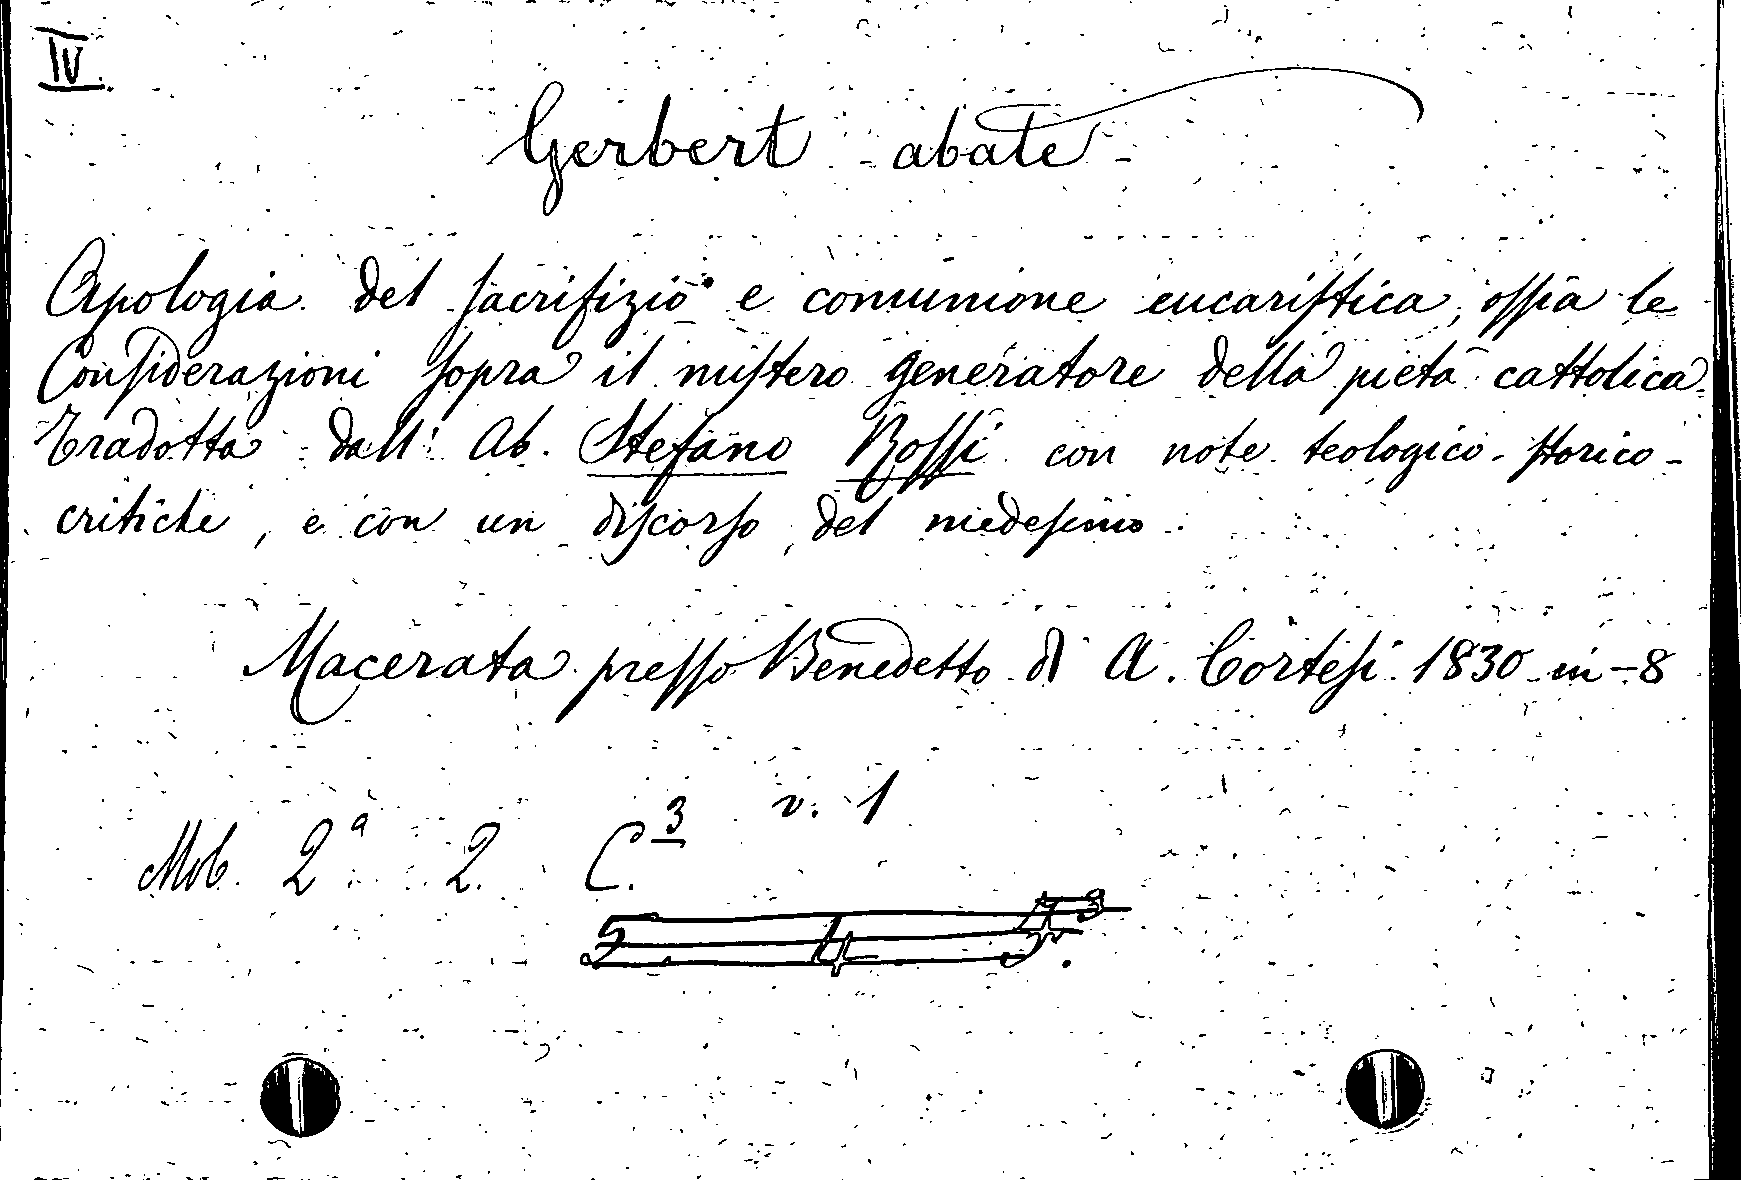 IV.
Gerbert abate
Apologia del sacrifizio e comunione eucaristica, ossia le
Considerazioni sopra il mistero generatore della pietà cattolica
Tradotta dall' Ab. Stefano Rossi con note teologico-storico-
critiche, e con un discorso del medesimo.
Macerata presso Benedetto di A. Cortesi 1830 in-8
v. 1
Mob. 2ª 2. C.3
5 4